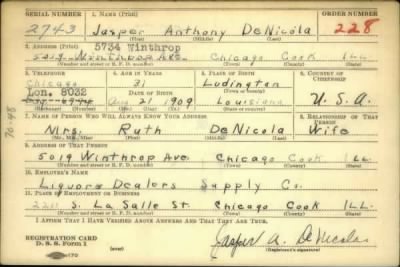 SERIAL NUMBER 1. NAME (Print) ORDER NUMBER
2743 Jasper Anthony DeNicola 228
(First) (Middle) (Last)
2. ADDRESS (Print) 5734 Winthrop
5019 Winthrop Ave. Chicago Cook ILL
(Number and street or R. F. D. number) (Town) (County) (State)
3. TELEPHONE 4. AGE IN YEARS 5. PLACE OF BIRTH 6. COUNTRY OF CITIZENSHIP
Chicago 31 Ludington
Lon. 8032 DATE OF BIRTH
Aug 21 1909 Louisiana U.S.A.
7. NAME OF PERSON WHO WILL ALWAYS KNOW YOUR ADDRESS 8. RELATIONSHIP OF THAT PERSON
Mrs. Ruth DeNicola Wife
(Mr., Mrs., Miss) (First) (Middle) (Last)
9. ADDRESS OF THAT PERSON
5019 Winthrop Ave. Chicago Cook ILL.
(Number and street or R. F. D. number) (Town) (County) (State)
10. EMPLOYER'S NAME
Liquors Dealers Supply Co.
11. PLACE OF EMPLOYMENT OR BUSINESS
S. La Salle St. Chicago Cook ILL.
(Number and street or R. F. D. number) (Town) (County) (State)
I AFFIRM THAT I HAVE VERIFIED ABOVE ANSWERS AND THAT THEY ARE TRUE.
REGISTRATION CARD
D. S. S. Form 1
Jasper A. DeNicola